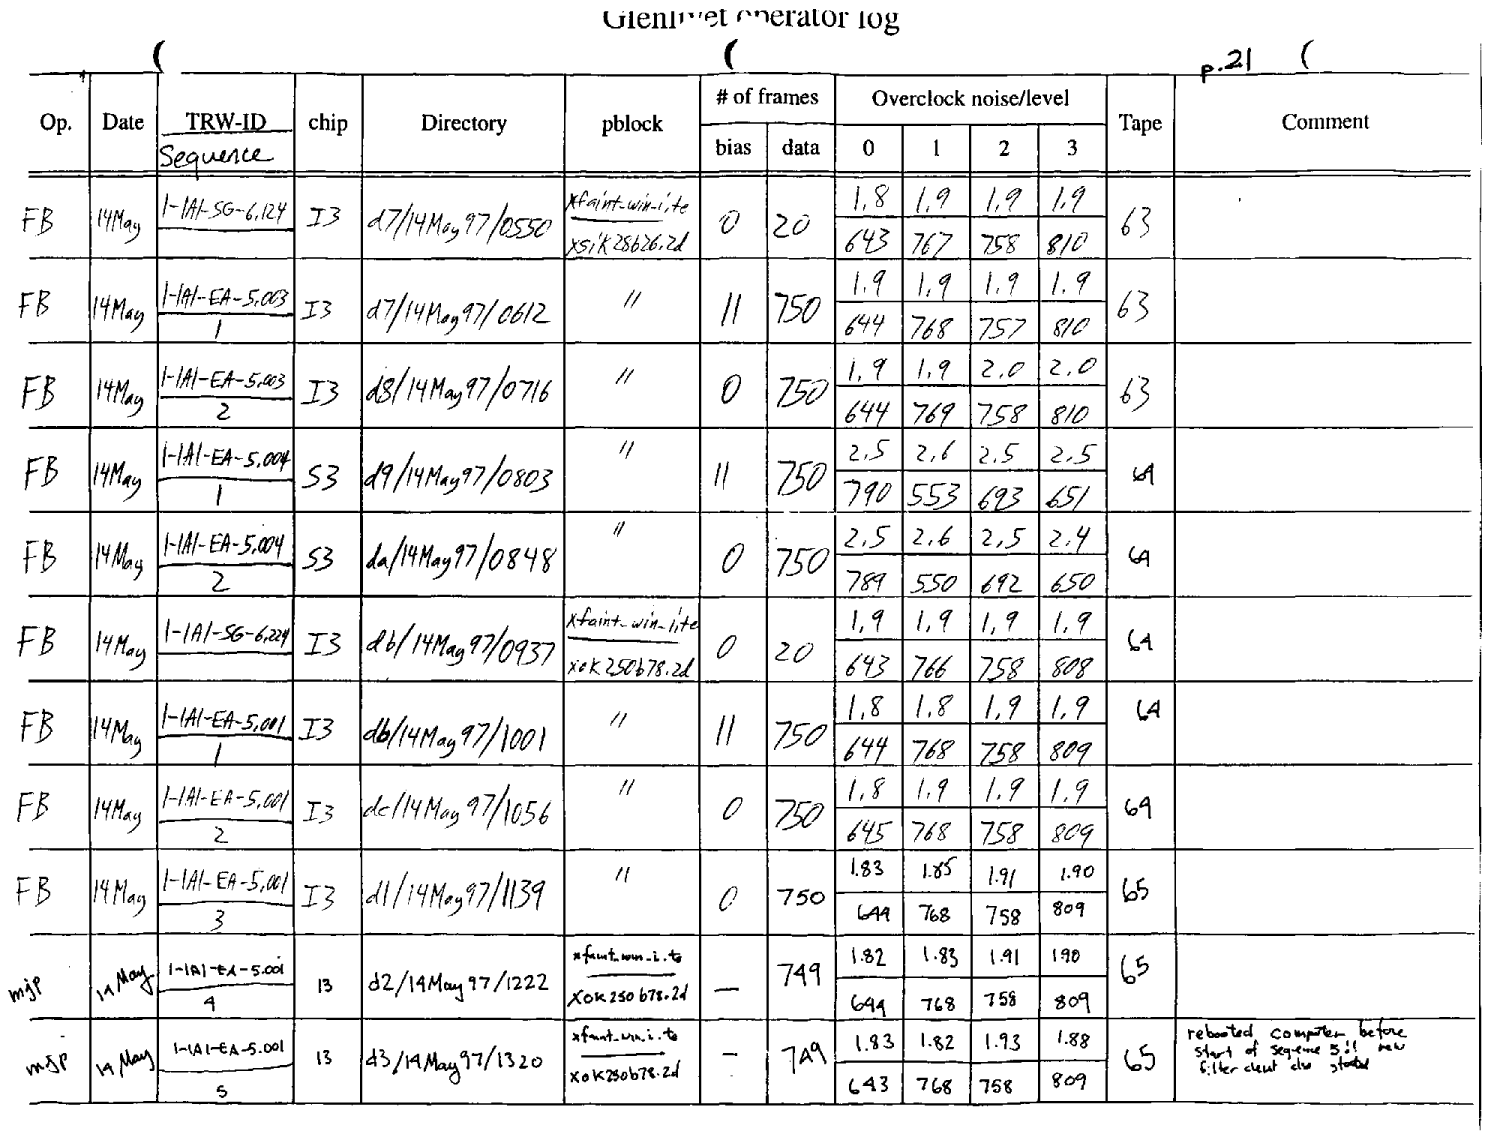 Glenlivet operator log
p.21
Op. Date TRW-ID chip Directory pblock # of frames Overclock noise/level Tape Comment
Sequence bias data 0 1 2 3
FB 14May 1-IAI-SG-6.124 I3 d7/14May97/0550 xfaint-win-i.te 0 20 1.8 1.9 1.9 1.9 63
xsik28b26.2d 643 767 758 810
FB 14May 1-IAI-EA-5.003 I3 d7/14May97/0612 " 11 750 1.9 1.9 1.9 1.9 63
1 644 768 757 810
FB 14May 1-IAI-EA-5.003 I3 d8/14May97/0716 " 0 750 1.9 1.9 2.0 2.0 63
2 644 769 758 810
FB 14May 1-IAI-EA-5.004 S3 d9/14May97/0803 " 11 750 2.5 2.6 2.5 2.5 64
1 790 553 693 651
FB 14May 1-IAI-EA-5.004 S3 da/14May97/0848 " 0 750 2.5 2.6 2.5 2.4 64
2 789 550 692 650
FB 14May 1-IAI-SG-6.224 I3 db/14May97/0937 xfaint-win-i.te 0 20 1.9 1.9 1.9 1.9 64
xok250b78.2d 643 766 758 808
FB 14May 1-IAI-EA-5.001 I3 db/14May97/1001 " 11 750 1.8 1.8 1.9 1.9 64
1 644 768 758 809
FB 14May 1-IAI-EA-5.001 I3 dc/14May97/1056 " 0 750 1.8 1.9 1.9 1.9 64
2 645 768 758 809
FB 14May 1-IAI-EA-5.001 I3 d1/14May97/1139 " 0 750 1.83 1.85 1.91 1.90 65
3 644 768 758 809
mjp 14 May 1-IAI-EA-5.001 I3 d2/14May97/1222 xfaint-win-i.te — 749 1.82 1.83 1.91 1.90 65
4 xok250b78.2d 644 768 758 809
mjp 14 May 1-IAI-EA-5.001 I3 d3/14May97/1320 xfaint-win-i.te — 749 1.83 1.82 1.93 1.88 65 rebooted computer before
start of sequence 5:11 new
5 xok250b78.2d 643 768 758 809 filter client also started